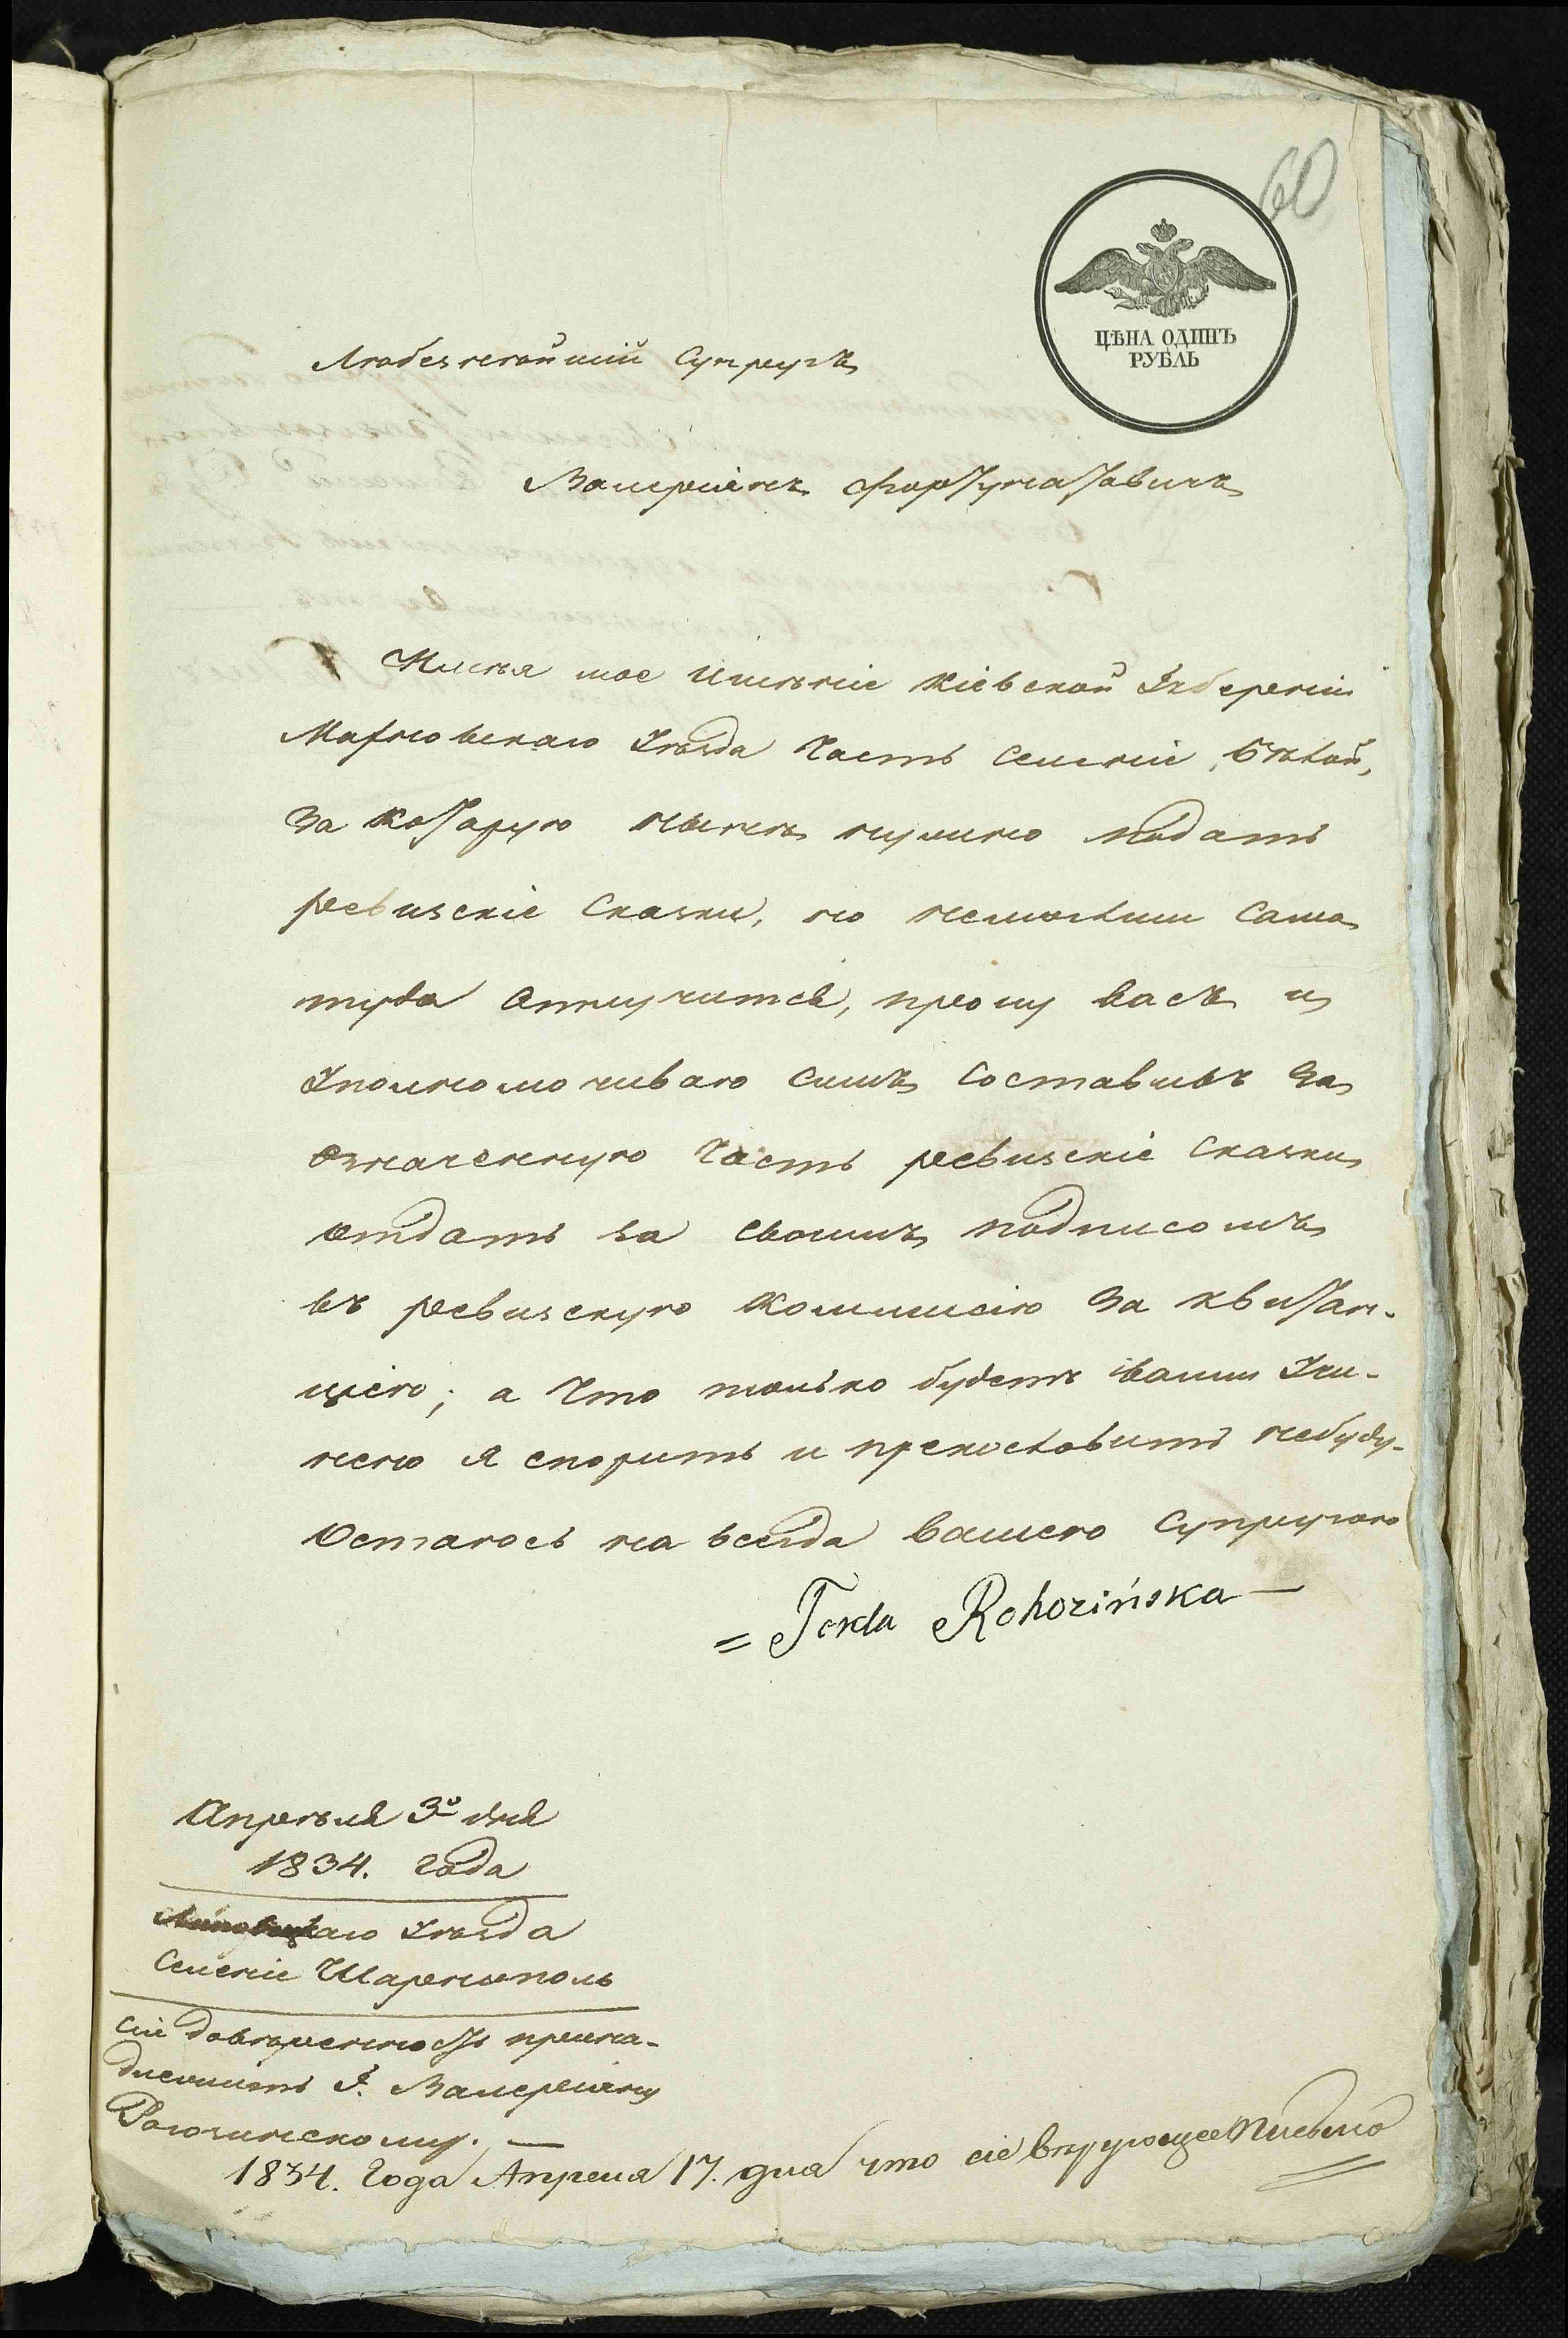 60
ЦѢНА ОДИНЪ
РУБЛЬ
Любезнейшій Супругъ
Валеріянъ Фортунатовичъ
Имѣя мое имѣніе Кіевской Губерніи
Махновскаго Уѣзда Часть Селеніи Бѣлой,
За которую нынѣ нужно подать
ревизскіе Сказки, но немогши сама
туда отлучится, прошу васъ и
Уполномочиваю симъ Составивъ за
означенную Часть ревизскіе Сказки
отдать за своимъ подписомъ
въ ревизскую Коммисію За квитан-
цією; а Что только будетъ вами Учи-
нено я спорить и прекословить небуду.
Остаюсь на всегда вашею Супругою
= Tekla Rohozińska —
Апрѣля 3го дня
1834. Года
Уѣзда
Селеніе Шарнополь
Сіе довѣренность прина-
длежитъ Г. Валеріяну
Рогозинскому. —
1834. Года Апреля 17. дня что сіе вѣрующее Письмо